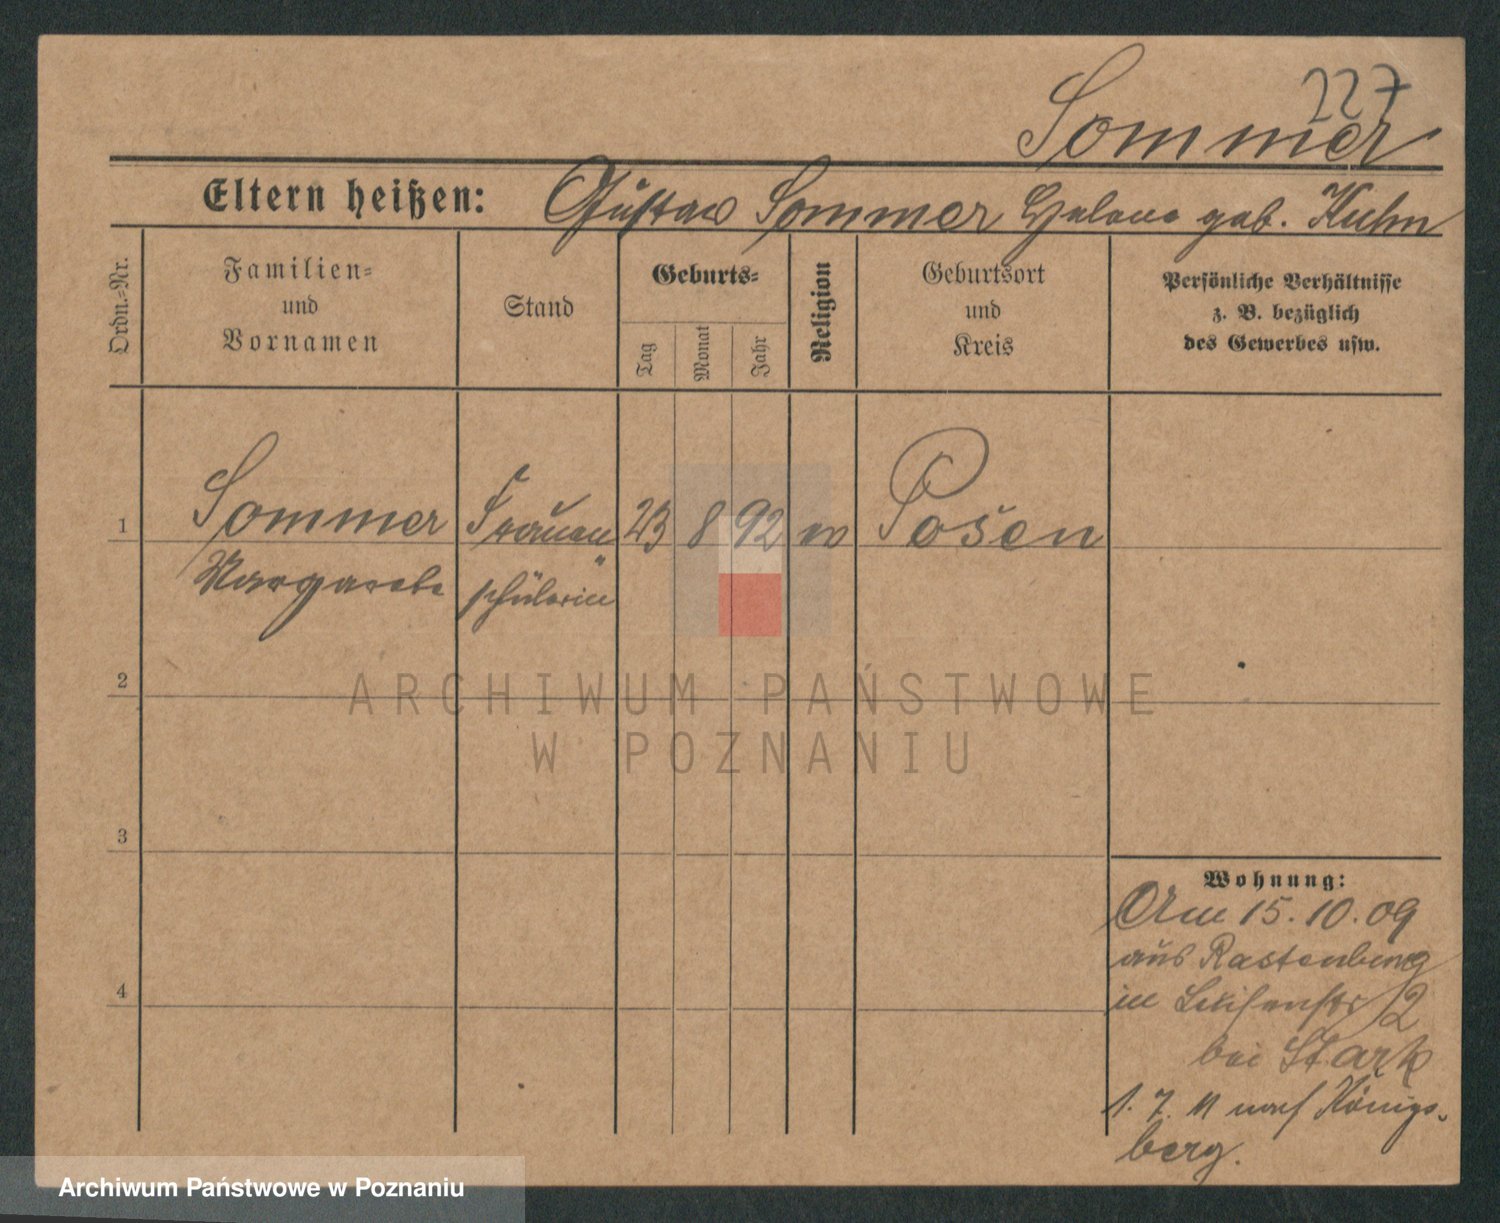 227
Sommer
Eltern heißen: Gustav Sommer Helene geb. Kuhn
Ordn.-Nr.
Familien-
und
Vornamen
Stand
Geburts-
Tag
Monat
Jahr
Religion
Geburtsort
und
Kreis
Persönliche Verhältnisse
z. B. bezüglich
des Gewerbes usw.
1 Sommer Frauen 23 8 92 Posen
Margarete schülerin
2
3
4
Wohnung:
Am 15.10.09
aus Rastenburg
in Luisenstr 12
bei Stark
1. 7. 11 nach Königs-
berg.
ARCHIWUM PAŃSTWOWE
W POZNANIU
Archiwum Państwowe w Poznaniu